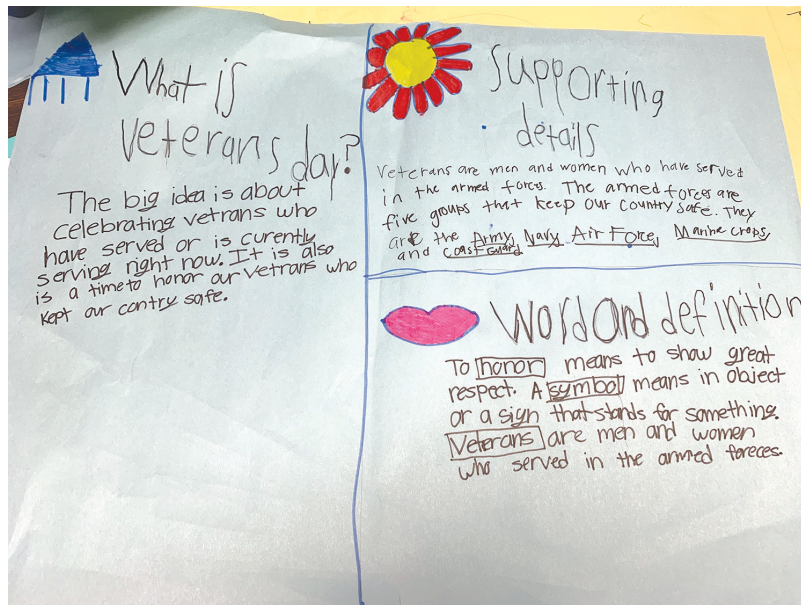 What is
veterans day?
The big idea is about
celebrating vetrans who
have served or is curently
serving right now. It is also
is a time to honor our vetrans who
kept our contry safe.
Supporting
details
Veterans are men and women who have served
in the armed forces. The armed forces are
five groups that keep our country safe. They
are the Army, Navy, Air Force, Marine crops,
and Coast Guard
Word and definition
To honor means to show great
respect. A symbol means in object
or a sign that stands for something.
Veterans are men and women
who served in the armed foreces.